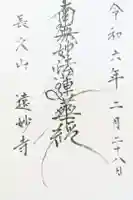 令和六年二月二十八日
南無妙法蓮華経
長久山
遠妙寺